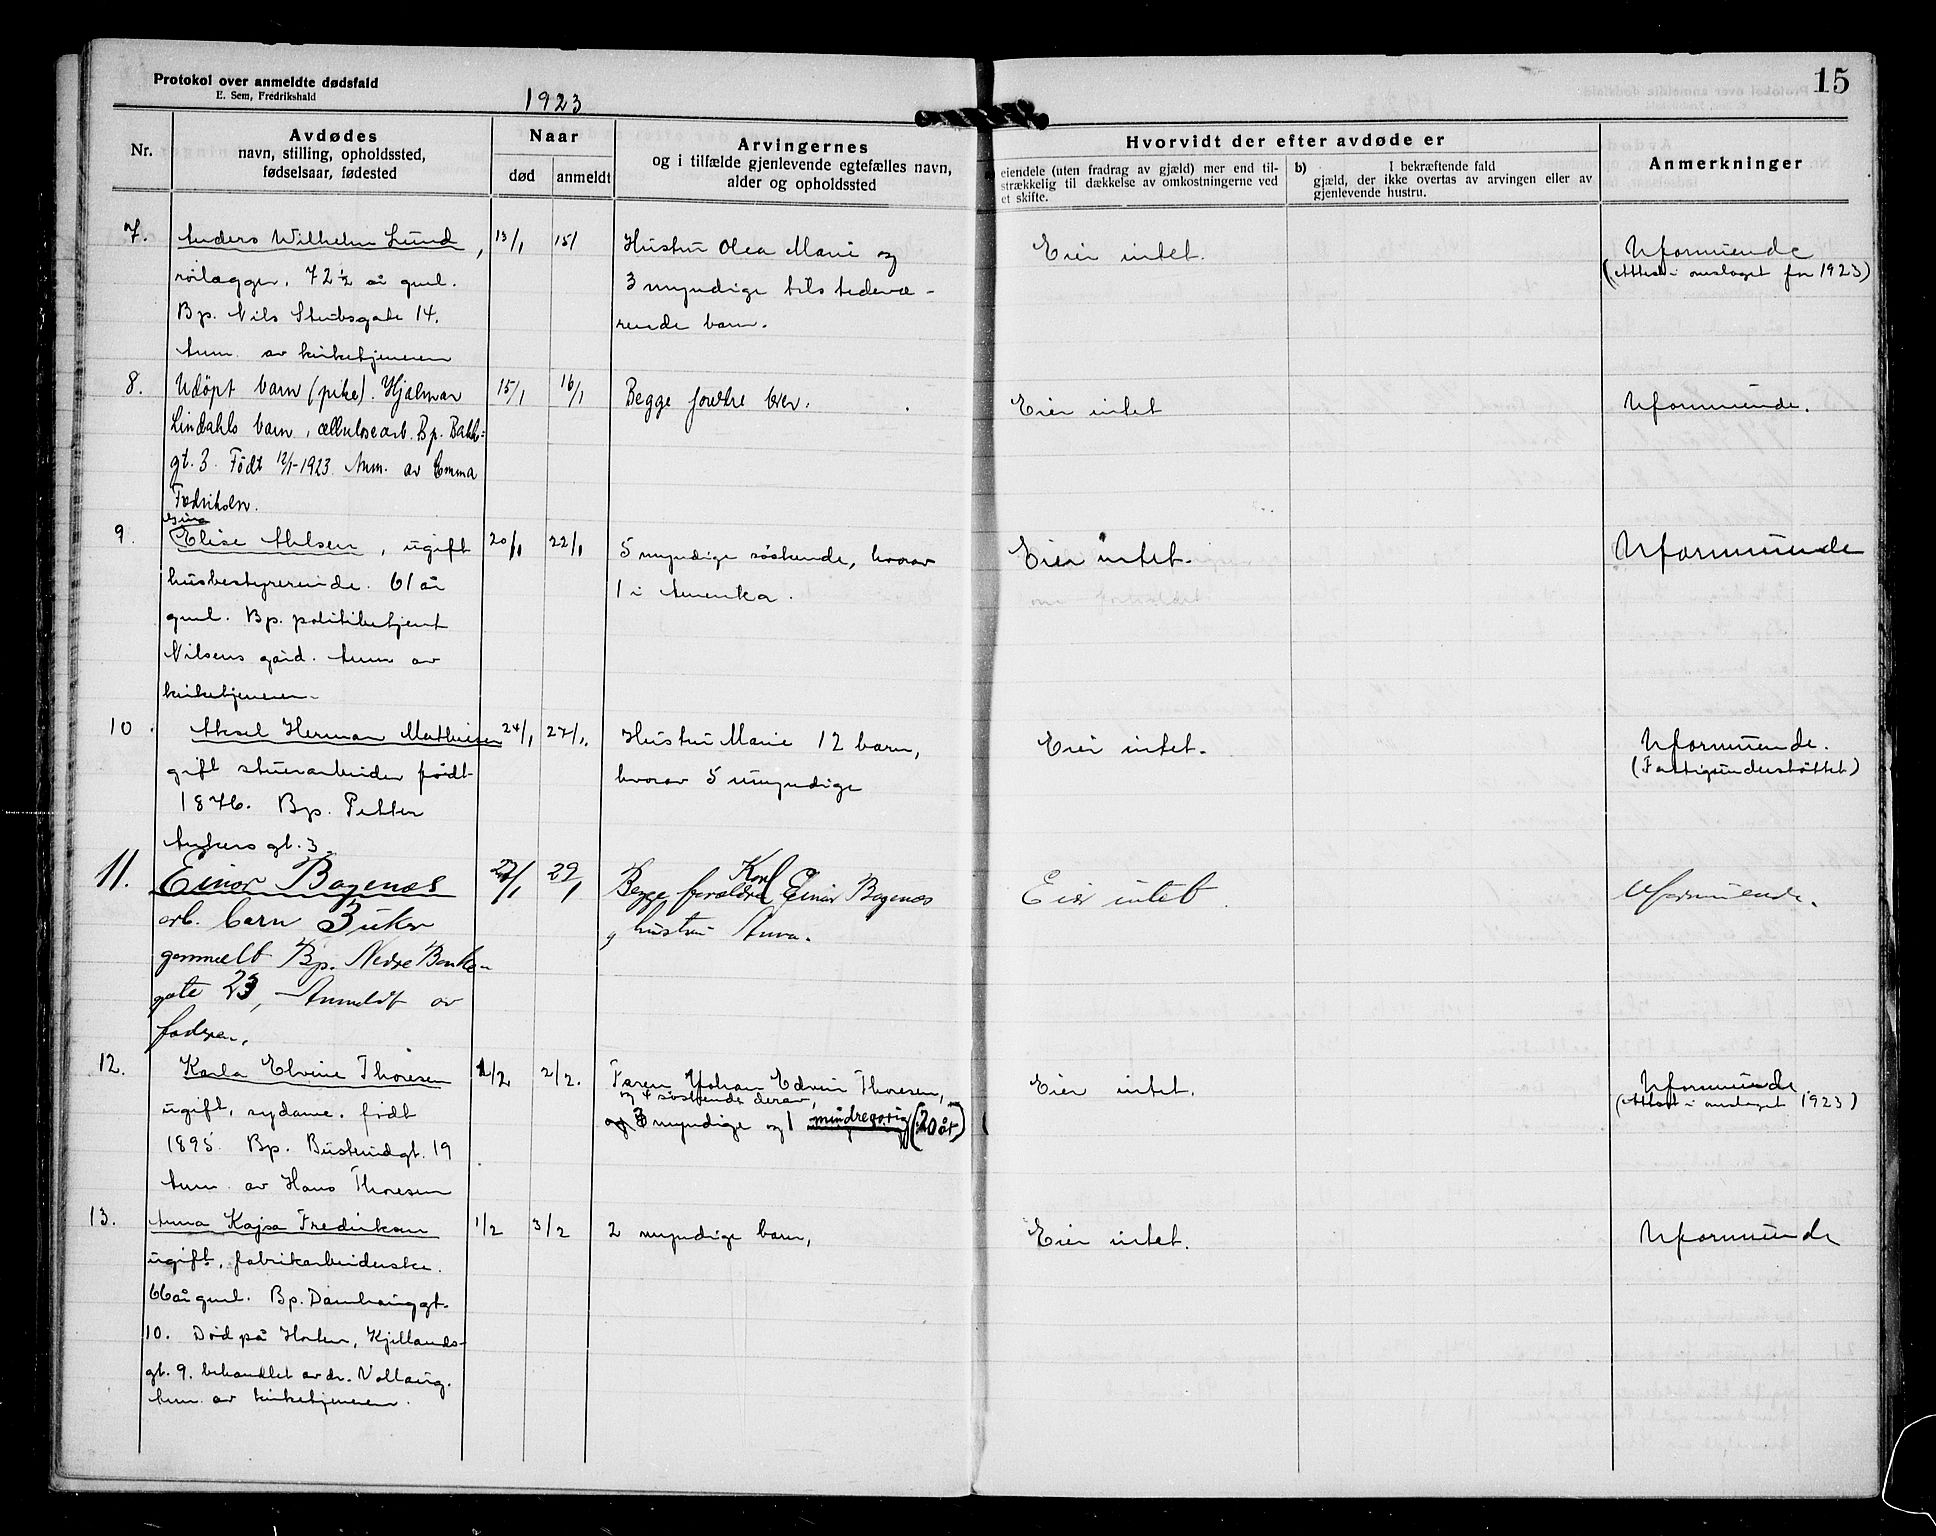 Protokol over anmeldte dødsfald
E. Sem, Fredrikshald
1923
15
Nr.
Avdødes
navn, stilling, opholdssted,
fødselsaar, fødested
Naar
død
anmeldt
Arvingernes
og i tilfælde gjenlevende egtefælles navn,
alder og opholdssted
Hvorvidt der efter avdøde er
eiendele (uten fradrag av gjæld) mer end til-
strækkelig til dækkelse av omkostningerne ved
et skifte.
b) I bekræftende fald
gjæld, der ikke overtas av arvingen eller av
gjenlevende hustru.
Anmerkninger
7.
Anders Wilhelm Lund,
rørlægger, 72 1/2 år gml.
Bp. Nils Stubsgate 14.
Anm. av kirketjeneren
13/1
15/
Hustru Olea Marie og
3 myndige tilstedevæ-
rende barn.
Eier intet.
Uformuende
(Attest i omslaget for 1923)
8.
Udøpt barn (pike). Hjalmar
Lindahls barn, cellulosearb. Bp. Bakke-
gt. 3. Født 12/1-1923. Anm. av Emma
Fredriksen.
15/1
16/1
Begge forældre lever.
Eier intet
Uformuende.
9.
Elise Ahlsen, ugift
husbestyrerinde. 61 år
gml. Bp. politibetjent
Nilsens gård. Anm av
kirketjeneren.
20/1
22/1
5 myndige søskende, hvorav
1 i Amerika.
Eier intet.
Uformuende
10.
Aksel Herman Mathisen
gift stuerarbeider født
1876. Bp. Petter
Ankers gt. 3
24/1
27/1.
Hustru Marie 12 barn,
hvorav 5 umyndige
Eier intet.
Uformuende.
(Fattigunderstøttet)
11.
Einar Bogenæs
arb. barn 3 uker
gammelt Bp. Nedre Banke-
gate 23, Anmeldt av
faderen.
27/1
29/1
Begge forældre Karl Einar Bogenæs
og hustru Anna.
Eier intet.
Uformuende.
12.
Karla Elvine Thoresen
ugift, sydame. født
1895. Bp. Buskindgt. 19
Anm. av Hans Thoresen
1/2
2/2.
Faren Johan Edvin Thoresen,
og 4 søskende derav,
3 myndige og 1 mindreårig (20 år)
Eier intet.
Uformuende
(Attest i omslaget 1923)
13.
Anna Kajsa Fredriksen
ugift, fabrikarbeiderske.
66 år gml. Bp. Damhauggt.
10. Død på Horten, Kjellands-
gt. 9. behandlet av dr. Vollaug.
Anm. av kirketjeneren.
1/2
3/2
2 myndige barn,
Eier intet.
Uformuende